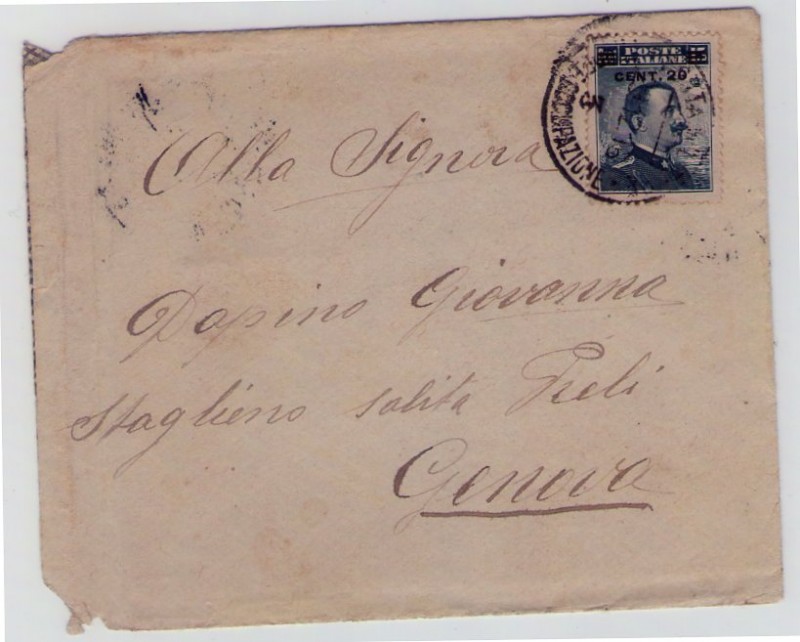 POSTE
ITALIANE
CENT. 20
Alla Signora
Dapino Giovanna
Staglieno salita Preli
Genova